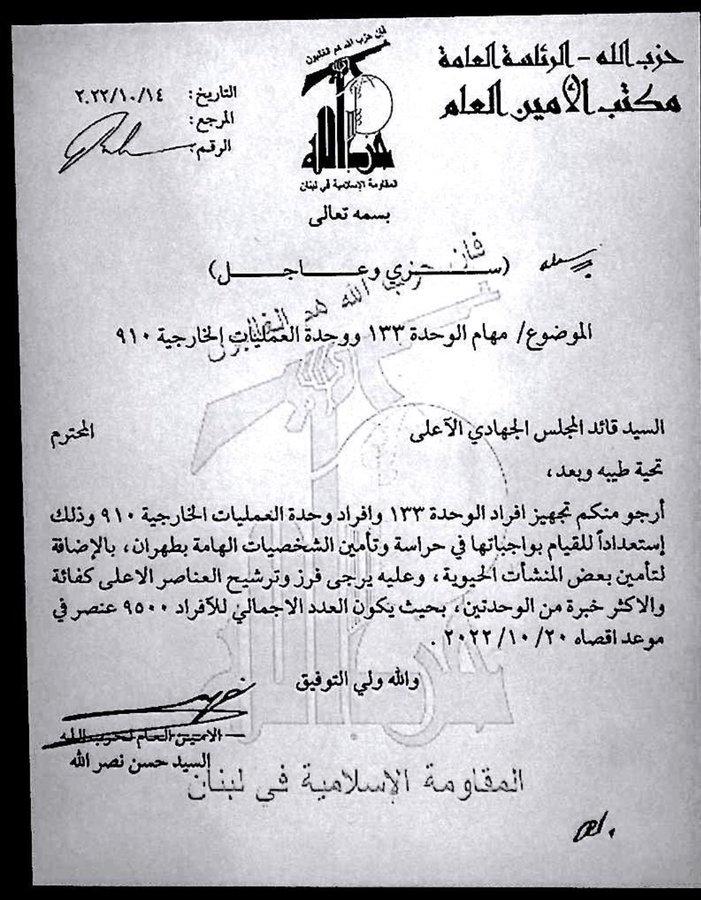 حزب الله - الرئاسة العامة
مكتب الأمين العام
التاريخ: ٢٠٢٢/١٠/١٤
المرجع:
الرقم:
فإن حزب الله هم الغالبون
حزب الله
المقاومة الإسلامية في لبنان
بسمه تعالى
(ســــري وعـــاجــــل)
الموضوع/ مهام الوحدة ١٣٣ ووحدة العمليات الخارجية ٩١٠
السيد قائد المجلس الجهادي الآعلى المحترم
تحية طيبه وبعد،
أرجو منكم تجهيز افراد الوحدة ١٣٣ وافراد وحدة العمليات الخارجية ٩١٠ وذلك
إستعداداً للقيام بواجباتها في حراسة وتأمين الشخصيات الهامة بطهران، بالإضافة
لتأمين بعض المنشأت الحيوية، وعليه يرجى فرز وترشيح العناصر الاعلى كفائة
والاكثر خبرة من الوحدتين، بحيث يكون العدد الاجمالي للآفراد ٩٥٠٠ عنصر في
موعد اقصاه ٢٠٢٢/١٠/٢٠ .
والله ولي التوفيق
الامين العام لحزب الله
السيد حسن نصر الله
المقاومة الإسلامية في لبنان